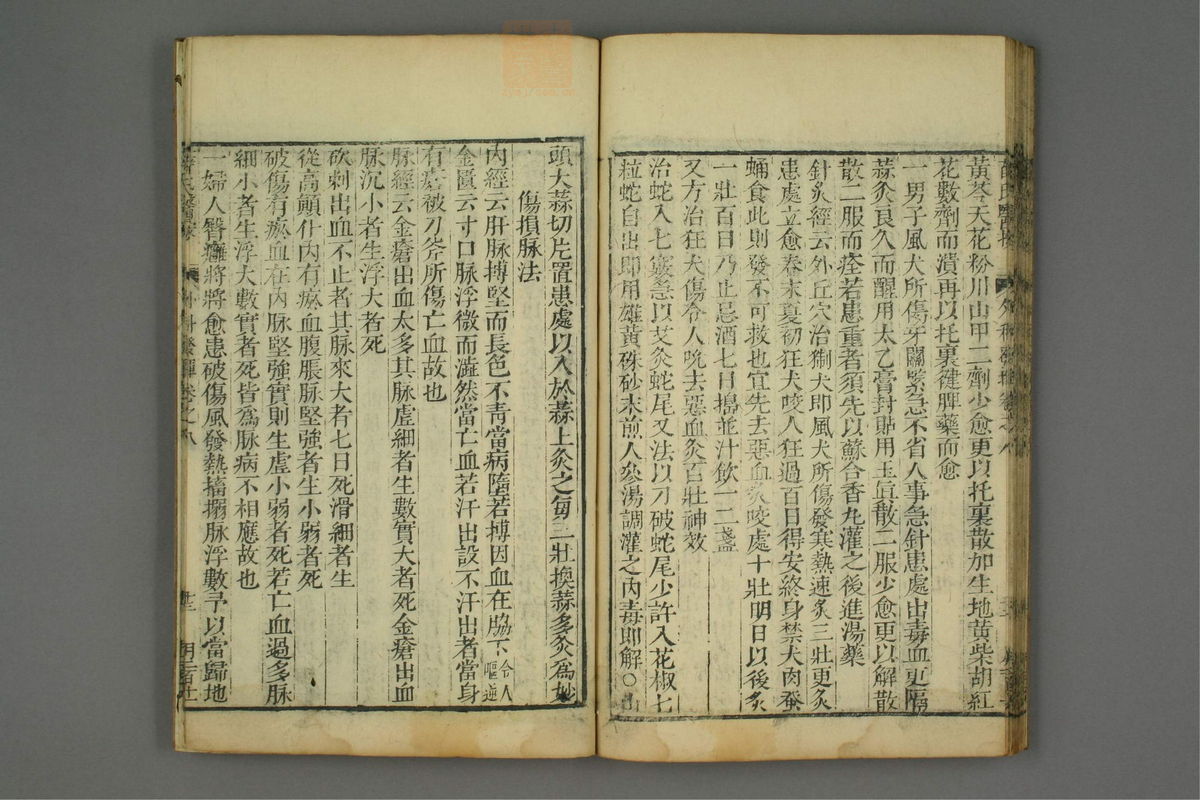 黃芩天花粉川山甲二劑少愈更以托裏散加生地黃柴胡紅
花數劑而潰再以托裏健脾藥而愈
一男子風犬所傷牙關緊急不省人事急針患處出毒血更隔
蒜灸良久而醒用太乙膏封貼用玉眞散二服少愈更以解散
散二服而痊若患重者須先以蘇合香丸灌之後進湯藥
針灸經云外丘穴治猘犬即風犬所傷發寒熱速灸三壯更灸
患處立愈春末夏初狂犬咬人狂過百日得安終身禁犬肉蠶
蛹食此則發不可救也宜先去惡血灸咬處十壯明日以後灸
一壯百日乃止忌酒七日搗韭汁飲一二盞
又方治狂犬傷令人吮去惡血灸百壯神效
治蛇入七竅急以艾灸蛇尾又法以刀破蛇尾少許入花椒七
粒蛇自出即用雄黃硃砂末煎人參湯調灌之內毒即解○山
頭大蒜切片置患處以入於蒜上灸之每三壯換蒜多灸爲妙
傷損脉法
內經云肝脉搏堅而長色不靑當病墮若搏因血在脇下令人嘔逆
金匱云寸口脉浮微而澁然當亡血若汗出設不汗出者當身
有瘡被刀斧所傷亡血故也
脉經云金瘡出血太多其脉虛細者生數實大者死金瘡出血
脉沉小者生浮大者死
砍刺出血不止者其脉來大者七日死滑細者生
從高顚仆內有瘀血腹脹脉堅強者生小弱者死
破傷有瘀血在內脉堅強實則生虛小弱者死若亡血過多脉
細小者生浮大數實者死皆爲脉病不相應故也
一婦人臀癰將愈患破傷風發熱搐搦脉浮數予以當歸地
薛氏醫案 外科發揮卷之八